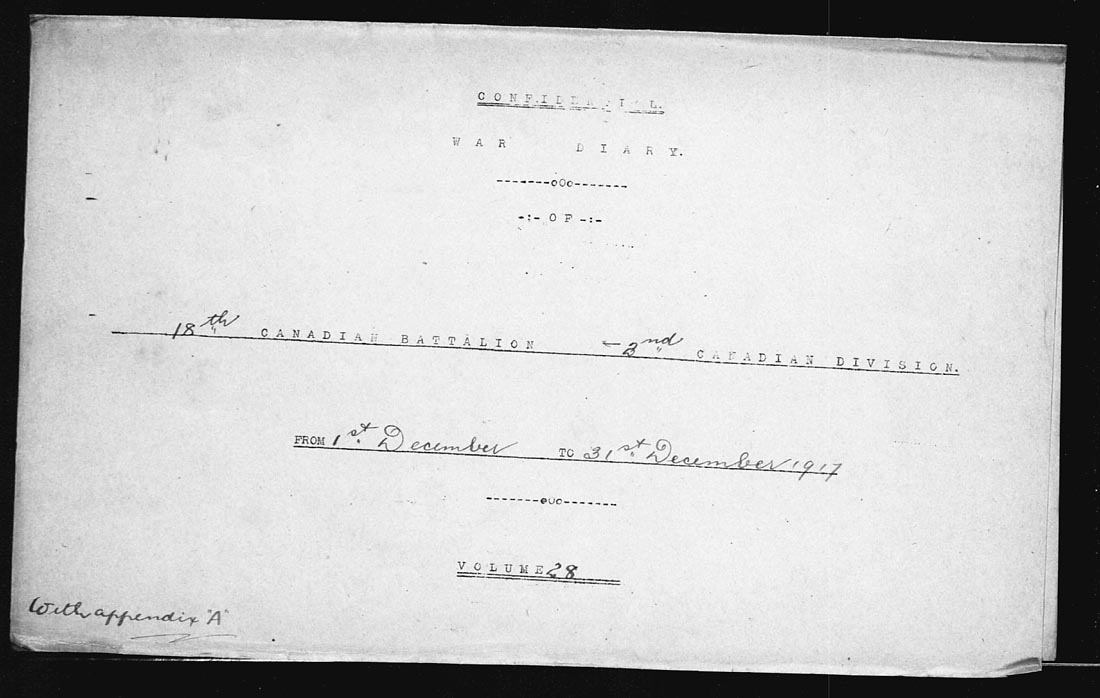 CONFIDENTIAL.
WAR DIARY.
-------oOo-------
-:- OF -:-
18th CANADIAN BATTALION - 2nd CANADIAN DIVISION.
FROM 1st December TO 31st December 1917
-------oOo-------
VOLUME 28
With appendix "A"